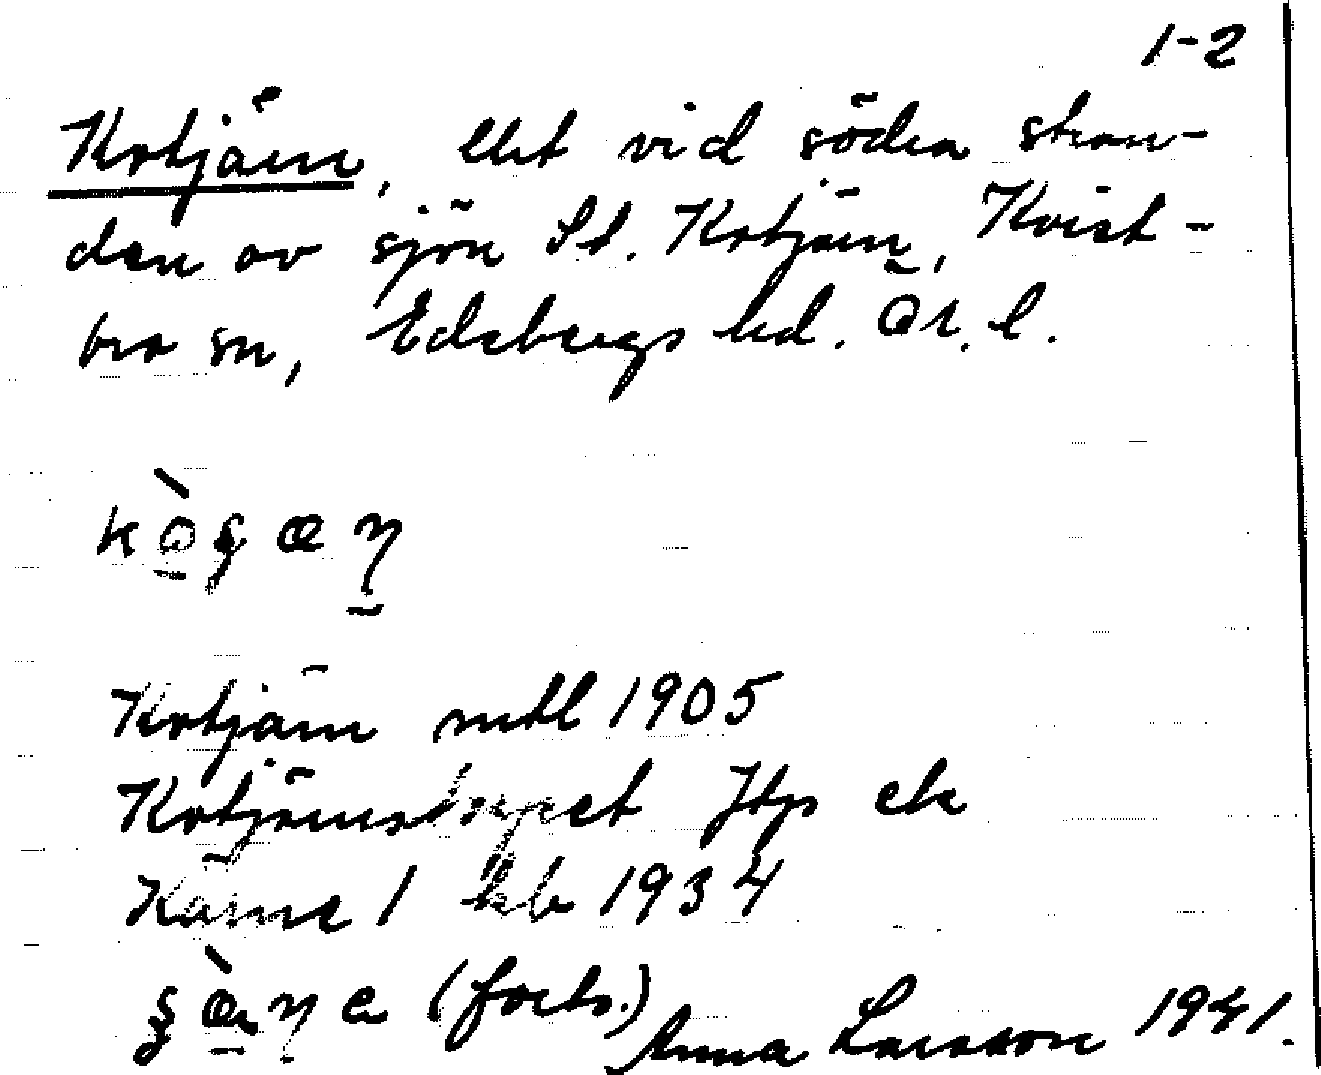 1-2
Kotjärn, litet vid södra stran-
den av sjön St. Kotjärn, Kvist-
bro sn, Edsbergs hd. Ör. l.
Kotjärn mtl 1905
Kotjärnstorpet Jtp ek
Kärne 1 kb 1934
(forts.) Anna Larsson 1941.